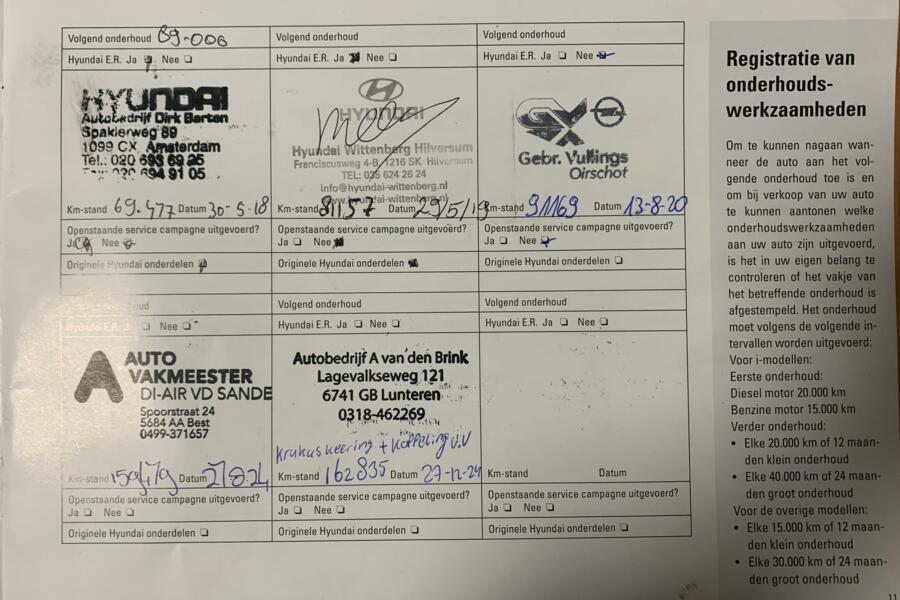 Volgend onderhoud 89-006
Hyundai E.R. Ja Nee
HYUNDAI
Autobedrijf Dirk Barten
Spaklerweg 89
1099 CX Amsterdam
Tel.: 020 693 69 25
020 694 91 05
Km-stand 69.477 Datum 30-5-18
Openstaande service campagne uitgevoerd?
Ja Nee
Originele Hyundai onderdelen
Volgend onderhoud
Hyundai E.R. Ja Nee
HYUNDAI
Hyundai Wittenberg Hilversum
Franciscusweg 4-B, 1216 SK Hilversum
TEL: 035 624 26 24
info@hyundai-wittenberg.nl
www.hyundai-wittenberg.nl
Km-stand 81157 Datum 29/5/19
Openstaande service campagne uitgevoerd?
Ja Nee
Originele Hyundai onderdelen
Volgend onderhoud
Hyundai E.R. Ja Nee
Gebr. Vullings
Oirschot
Km-stand 91169 Datum 13-8-20
Openstaande service campagne uitgevoerd?
Ja Nee
Originele Hyundai onderdelen
Hyundai E.R. Ja Nee
AUTO
VAKMEESTER
DI-AIR VD SANDE
Spoorstraat 24
5684 AA Best
0499-371657
Km-stand Datum
Openstaande service campagne uitgevoerd?
Ja Nee
Originele Hyundai onderdelen
Volgend onderhoud
Hyundai E.R. Ja Nee
Autobedrijf A van den Brink
Lagevalkseweg 121
6741 GB Lunteren
0318-462269
krukaskeering + koppeling v.v
Km-stand 162835 Datum 27-12-24
Openstaande service campagne uitgevoerd?
Ja Nee
Originele Hyundai onderdelen
Volgend onderhoud
Hyundai E.R. Ja Nee
Km-stand Datum
Openstaande service campagne uitgevoerd?
Ja Nee
Originele Hyundai onderdelen
Registratie van
onderhouds-
werkzaamheden
Om te kunnen nagaan wan-
neer de auto aan het vol-
gende onderhoud toe is en
om bij verkoop van uw auto
te kunnen aantonen welke
onderhoudswerkzaamheden
aan uw auto zijn uitgevoerd,
is het in uw eigen belang te
controleren of het vakje van
het betreffende onderhoud is
afgestempeld. Het onderhoud
moet volgens de volgende in-
tervallen worden uitgevoerd:
Voor i-modellen:
Eerste onderhoud:
Diesel motor 20.000 km
Benzine motor 15.000 km
Verder onderhoud:
• Elke 20.000 km of 12 maan-
den klein onderhoud
• Elke 40.000 km of 24 maan-
den groot onderhoud
Voor de overige modellen:
• Elke 15.000 km of 12 maan-
den klein onderhoud
• Elke 30.000 km of 24 maan-
den groot onderhoud
11